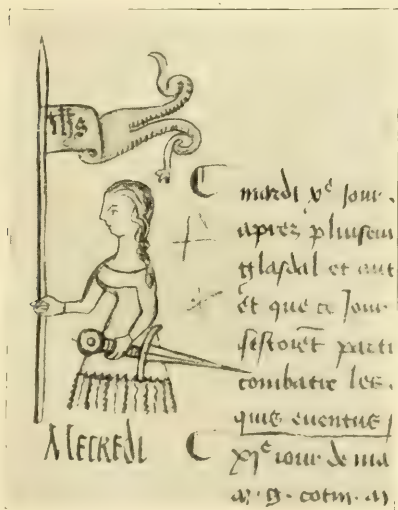 IHS
mardi xe jour
aprez pluiseurs
glasdal et aut
et que ce jour
sestoiēt parti
combatre les
quis eventus
Mecredi
xie jour de ma